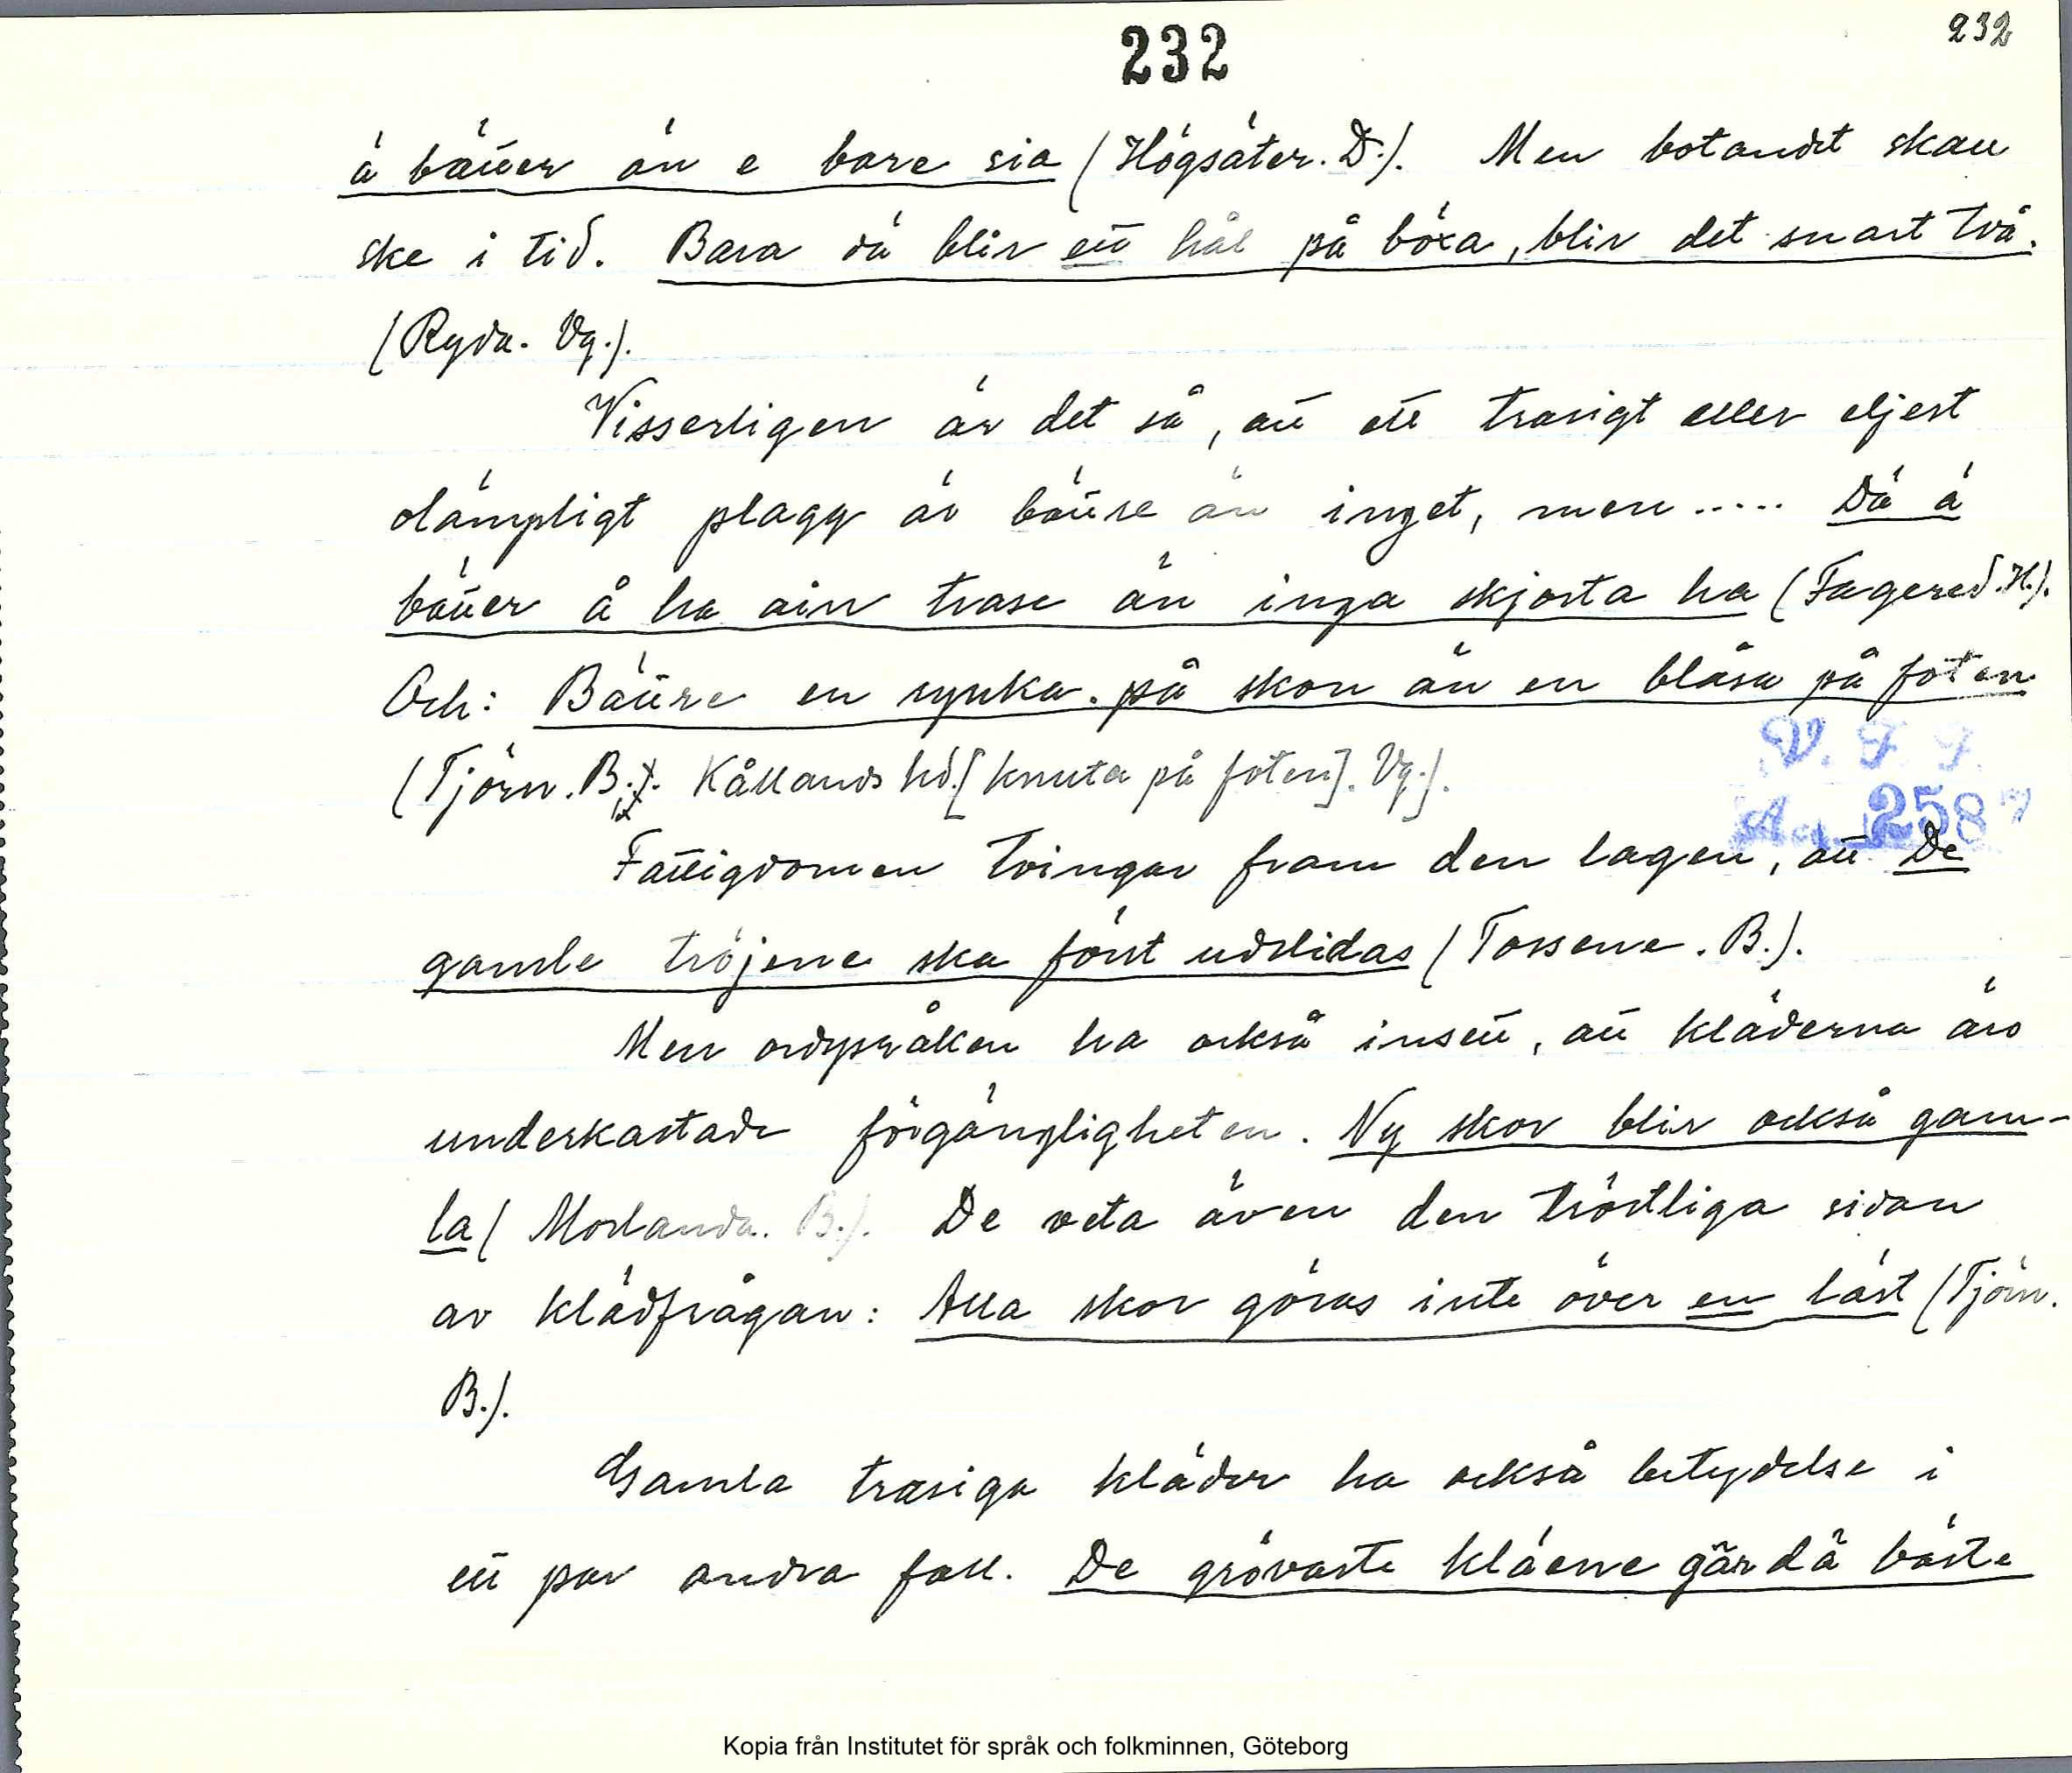 232
232
ä bätter än e bare sia (Högsäter. D.). Men botandet skall
ske i tid. Bara dä blir ett hål på böxa, blir det snart två.
(Ryda. Vg.).
Visserligen är det så, att ett trasigt eller eljest
olämpligt plagg är bättre än inget, men ..... Dä ä
bätter å ha ain trase än inga skjorta ha (Fagered. H.).
Och: Bättre en rynka på skon än en blåsa på foten
(Tjörn. B.; Kållands hd. [knuta på foten]. Vg.).
V. F. F.
Acc. 2587
Fattigdomen tvingar fram den lagen, att De
gamle tröjene ska först udslidas (Tossene. B.).
Men ordspråken ha också insett, att kläderna äro
underkastade förgängligheten. Ny skor blir också gam-
la (Morlanda. B.). De veta även den tröstliga sidan
av klädfrågan: Alla skor göras inte över en läst (Tjörn.
B.).
Gamla trasiga kläder ha också betydelse i
ett par andra fall. De grövaste kläene gär dä bäste
Kopia från Institutet för språk och folkminnen, Göteborg